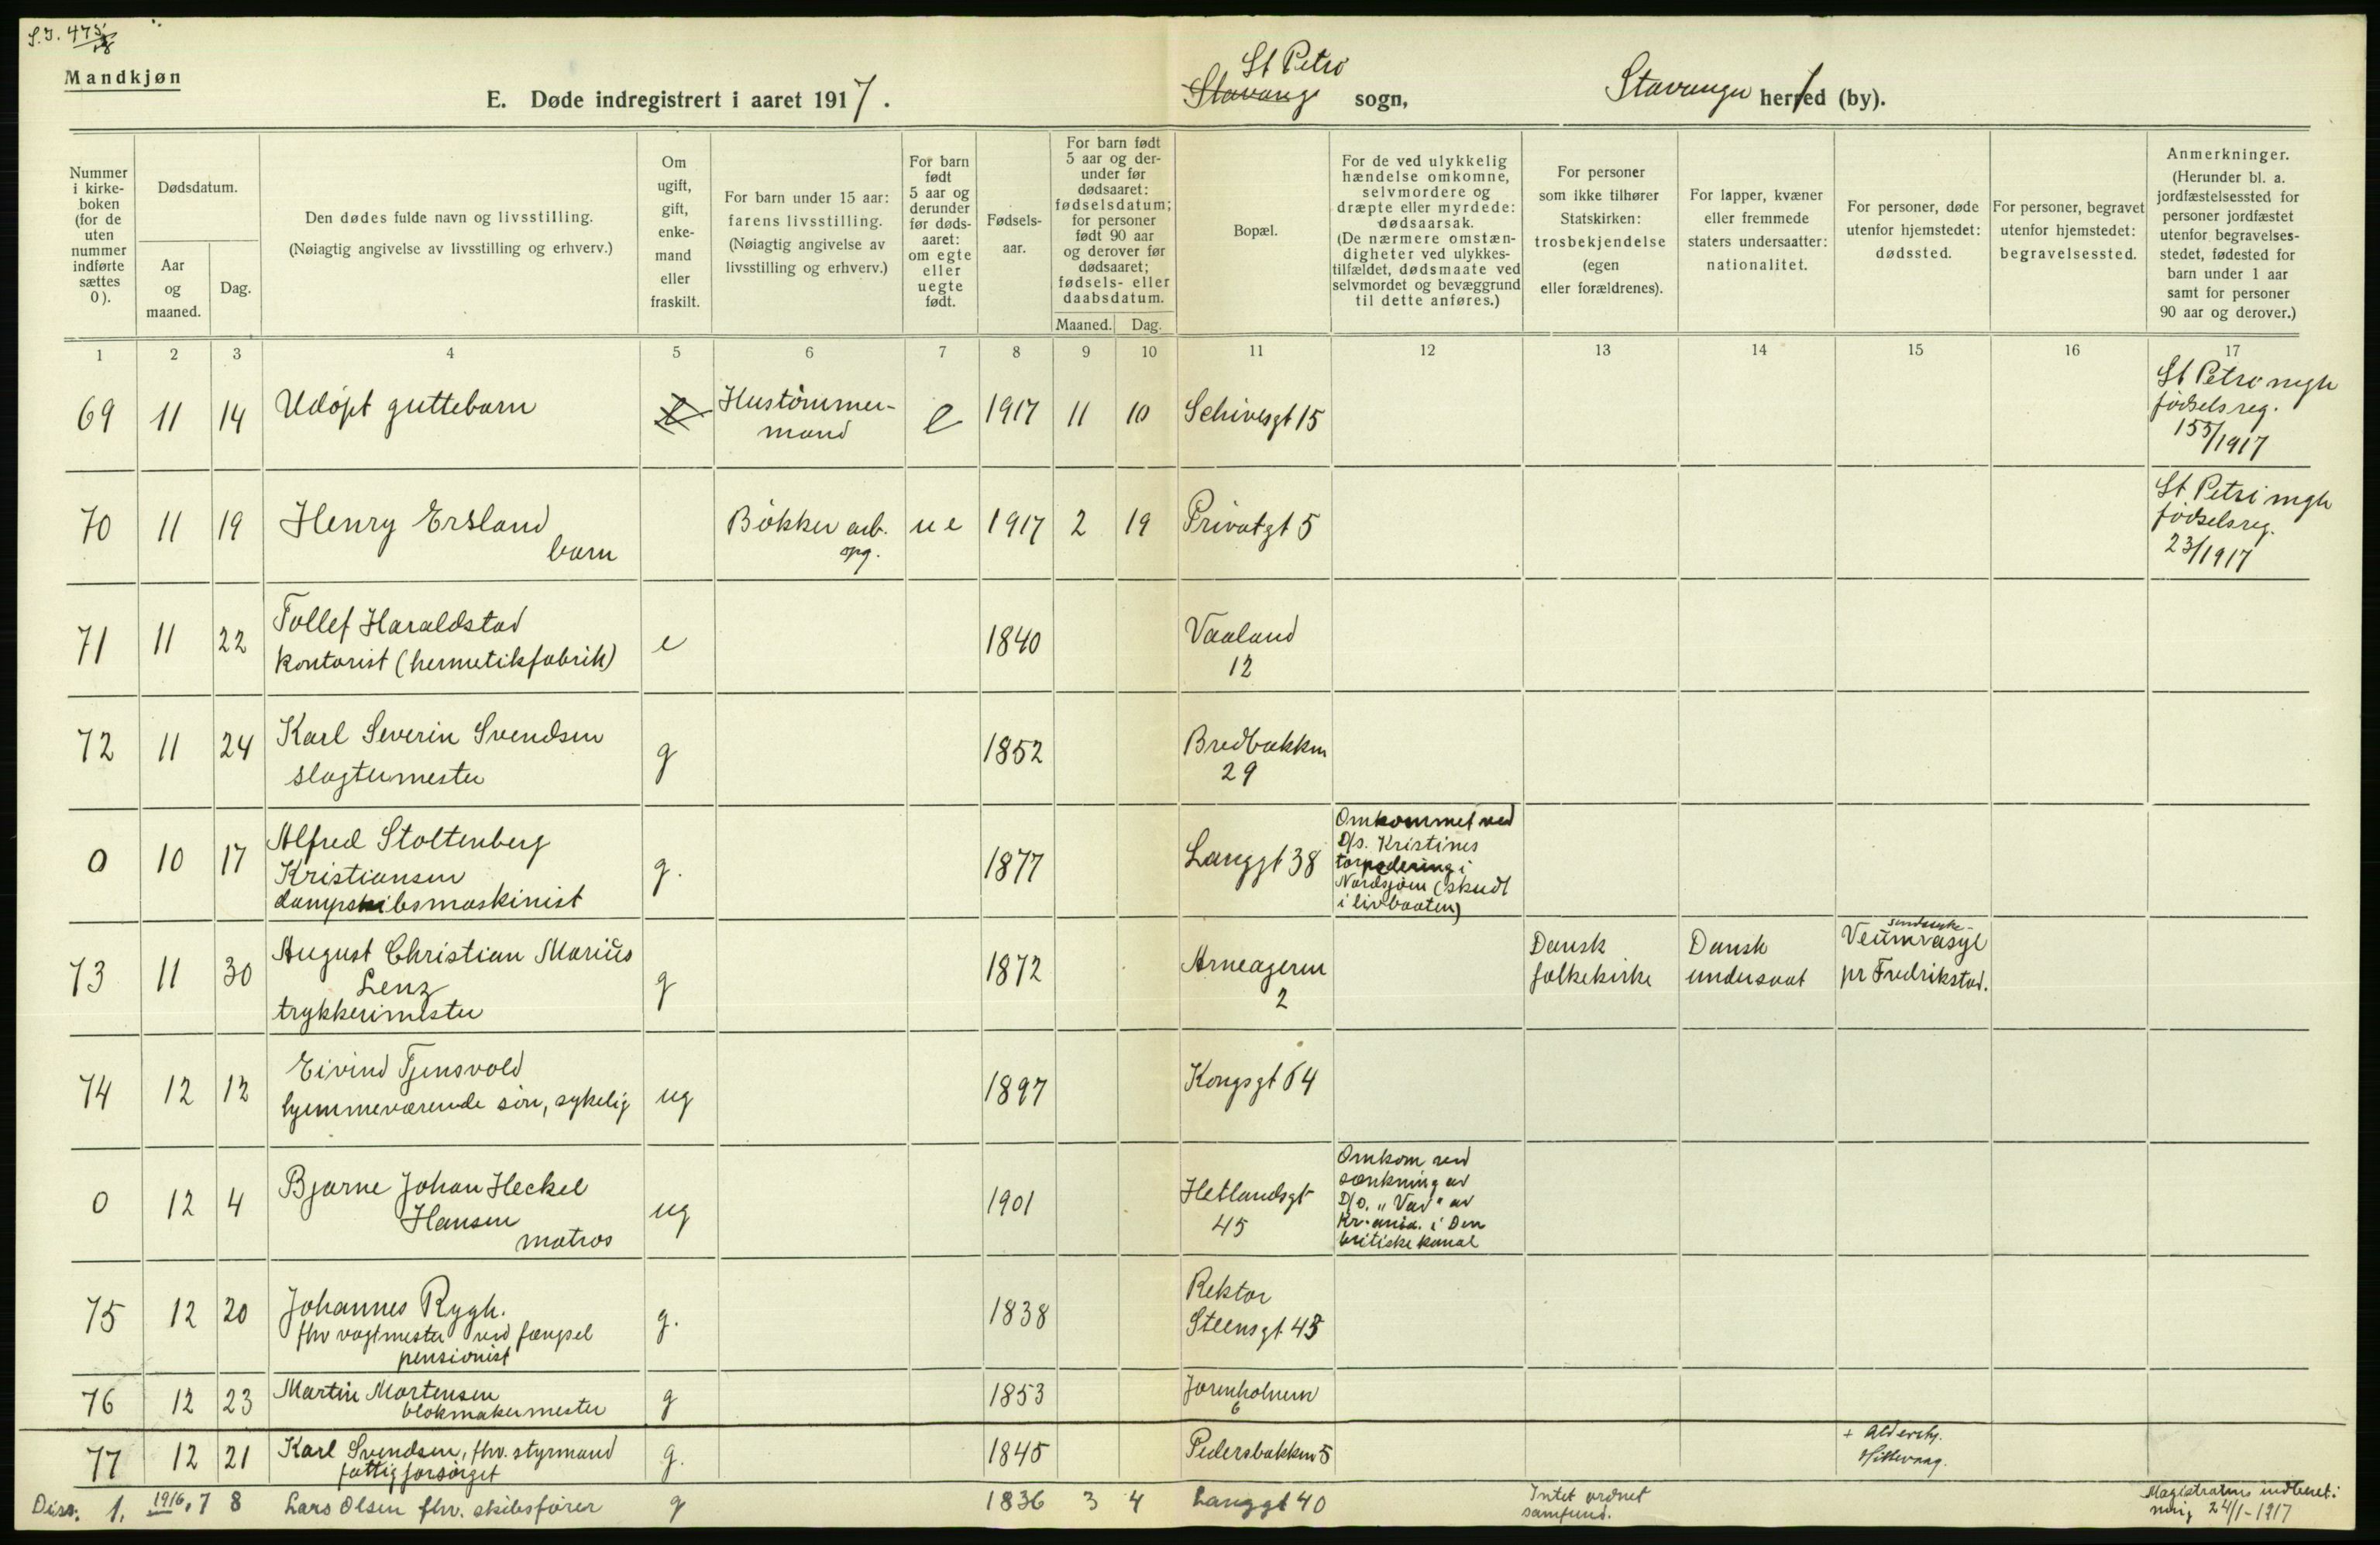 S.J. 475/18
Mandkjøn
E. Døde indregistrert i aaret 1917.
St Petri
Stavang sogn,
Stavanger herred (by).
Nummer i kirke-boken (for de uten nummer indførte sættes 0).
Dødsdatum.
Aar og maaned.
Dag.
Den dødes fulde navn og livsstilling.
(Nøiagtig angivelse av livsstilling og erhverv.)
Om ugift, gift, enke-mand eller fraskilt.
For barn under 15 aar: farens livsstilling.
(Nøiagtig angivelse av livsstilling og erhverv.)
For barn født 5 aar og derunder før døds-aaret: om egte eller uegte født.
Fødsels-aar.
For barn født 5 aar og der-under før dødsaaret: fødselsdatum; for personer født 90 aar og derover før dødsaaret; fødsels- eller daabsdatum.
Maaned. Dag.
Bopæl.
For de ved ulykkelig hændelse omkomne, selvmordere og dræpte eller myrdede: dødsaarsak.
(De nærmere omstæn-digheter ved ulykkes-tilfældet, dødsmaate ved selvmordet og bevæggrund til dette anføres.)
For personer som ikke tilhører Statskirken: trosbekjendelse (egen eller forældrenes).
For lapper, kvæner eller fremmede staters undersaatter: nationalitet.
For personer, døde utenfor hjemstedet: dødssted.
For personer, begravet utenfor hjemstedet: begravelsessted.
Anmerkninger.
(Herunder bl. a. jordfæstelsessted for personer jordfæstet utenfor begravelses-stedet, fødested for barn under 1 aar samt for personer 90 aar og derover.)
1 2 3 4 5 6 7 8 9 10 11 12 13 14 15 16 17
69 11 14 Udøpt guttebarn Hustømmer-mand e 1917 11 10 Schivesgt 15 St Petri mgh fødselsreg. 155/1917
70 11 19 Henry Ersland barn Bøkker arb. opg. u e 1917 2 19 Privatgt 5 St. Petri mgh fødselsreg. 23/1917
71 11 22 Tollef Haraldstad kontorist (hermetikfabrik) e 1840 Vaaland 12
72 11 24 Karl Severin Svendsen slagtermester g 1852 Bredbakken 29
0 10 17 Alfred Stoltenberg Kristiansen dampskibsmaskinist g. 1877 Langgt 38 Omkommet ved D/s. Kristines torpedering i Nordsjøen (skudt i livbaaten)
73 11 30 August Christian Marius Lenz trykkerimester g 1872 Arneageren 2 Dansk folkekirke Dansk undersaat Veum sindssyke-asyl pr Fredrikstad.
74 12 12 Eivind Tjensvold hjemmeværende søn, sykelig ug 1897 Kongsgt 64
0 12 4 Bjarne Johan Heckel Hansen matros ug 1901 Hetlandsgt 45 Omkom ved sænkning av D/S. "Vav" av Kr.ania. i Den britiske kanal
75 12 20 Johannes Rygh. fhv vagtmester ved fængsel pensionist g. 1838 Rektor Steensgt. 45
76 12 23 Martin Mortensen blokmakermester g 1853 Jorenholmen 6
77 12 21 Karl Svendsen, fhv. styrmand fattigforsørget g. 1845 Pedersbakken 5 + Aldershj. Hillevaag.
Diss. 1. 1916. 7 8 Lars Olsen fhv. skibsfører g 1836 3 4 Langgt 40 Intet ordnet samfund. Magistratens indberet-ning 24/1-1917